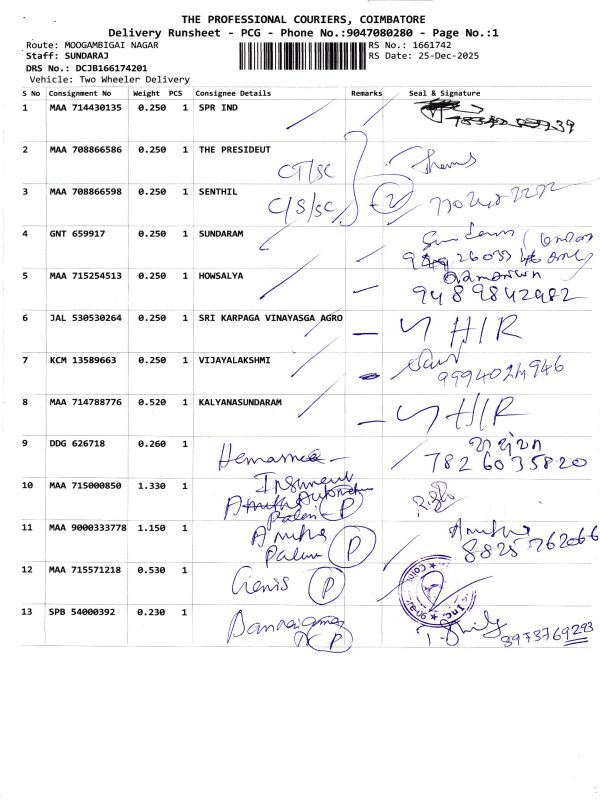 THE PROFESSIONAL COURIERS, COIMBATORE
Delivery Runsheet - PCG - Phone No.:9047080280 - Page No.:1
Route: MOOGAMBIGAI NAGAR RS No.: 1661742
Staff: SUNDARAJ RS Date: 25-Dec-2025
DRS No.: DCJB166174201
Vehicle: Two Wheeler Delivery
S No Consignment No Weight PCS Consignee Details Remarks Seal & Signature
1 MAA 714430135 0.250 1 SPR IND
2 MAA 708866586 0.250 1 THE PRESIDEUT
CT/SC
3 MAA 708866598 0.250 1 SENTHIL
C/S/SC 2
4 GNT 659917 0.250 1 SUNDARAM
5 MAA 715254513 0.250 1 HOWSALYA
9489842982
6 JAL 530530264 0.250 1 SRI KARPAGA VINAYASGA AGRO
HIR
7 KCM 13589663 0.250 1 VIJAYALAKSHMI
9994024946
8 MAA 714788776 0.520 1 KALYANASUNDARAM
HIR
9 DDG 626718 0.260 1
7826035820
10 MAA 715000850 1.330 1
P
11 MAA 9000333778 1.150 1 Anitha
P 8825762066
12 MAA 715571218 0.530 1 Genis P
13 SPB 54000392 0.230 1
P 8973769293